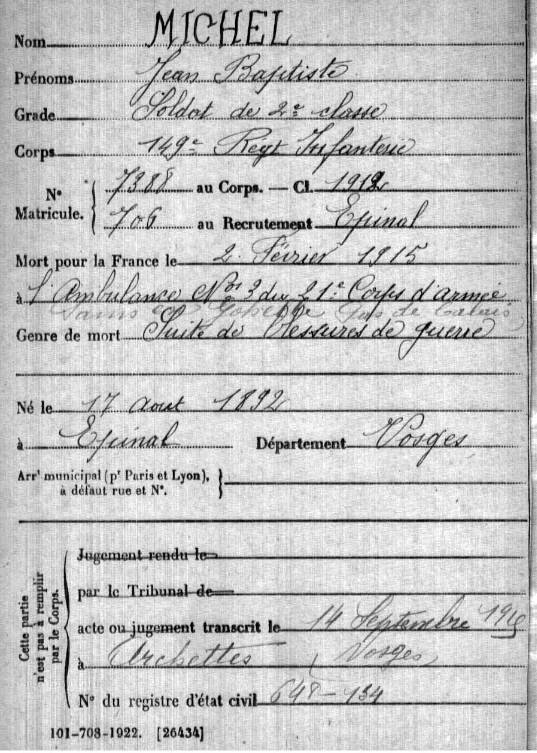 Nom MICHEL
Prénoms Jean Baptiste
Grade Soldat de 2e classe
Corps 149e Regt Infanterie
No Matricule. { 7388 au Corps. — Cl. 1912
706 au Recrutement Epinal
Mort pour la France le 2 Février 1915
à l'Ambulance No 3 du 21e Corps d'armée
Pas de Calais
Genre de mort Suite de Blessures de guerre
Né le 17 Aout 1892
à Epinal Département Vosges
Arrt municipal (pr Paris et Lyon), }
à défaut rue et No.
Cette partie
n'est pas à remplir
par le Corps.
Jugement rendu le
par le Tribunal de
acte ou jugement transcrit le 14 Septembre 1915
à Archettes (Vosges)
No du registre d'état civil 648-134
101-708-1922. [26434]